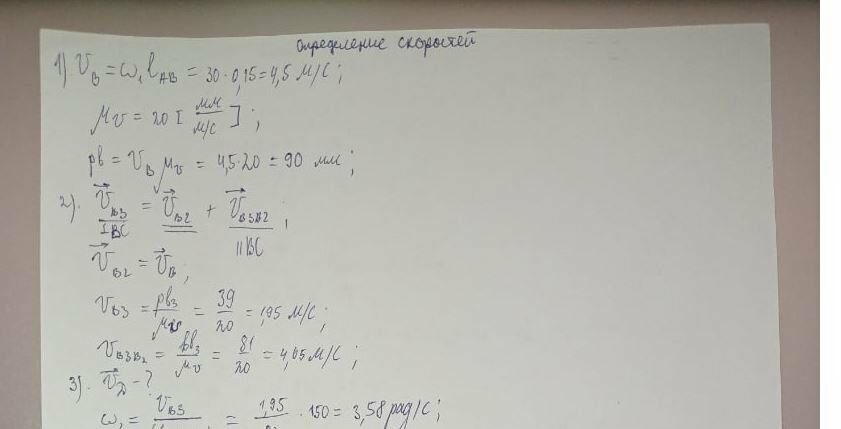 Определение скоростей
1) V_B = ω₁ l_AB = 30 · 0,15 = 4,5 м/с ;
μv = 20 [ мм / м/с ] ;
pb = V_B μ_v = 4,5 · 20 = 90 мм ;
2). V⃗_B3 = V⃗_B2 + V⃗_B3B2 ;
⊥BC ||BC
V⃗_B2 = V⃗_B ;
V_B3 = pb₃ / μv = 39 / 20 = 1,95 м/с ;
V_B3B2 = bb₃ / μv = 81 / 20 = 4,05 м/с ;
3). V⃗_D - ?
ω₁ = V_B3 = 1,95 · 150 = 3,58 рад/с ;